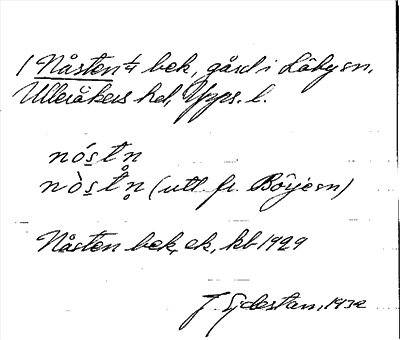 1 Nåsten 1/4 bek, gård i Läby sn.
Ulleråkers hd, Upps. l.
nóstn
nòstn̥ (utt. fr. Börje sn)
Nåsten bek, ek, kb 1929
1932